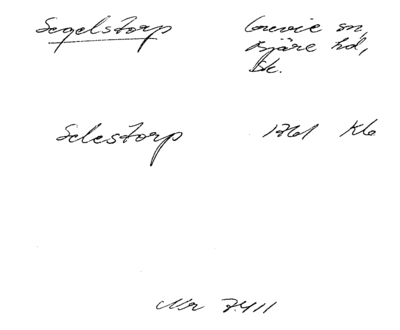 Segelstorp Grevie sn,
Bjäre hd,
Sk.
Selestorp 1761 Kb
Nor 7411